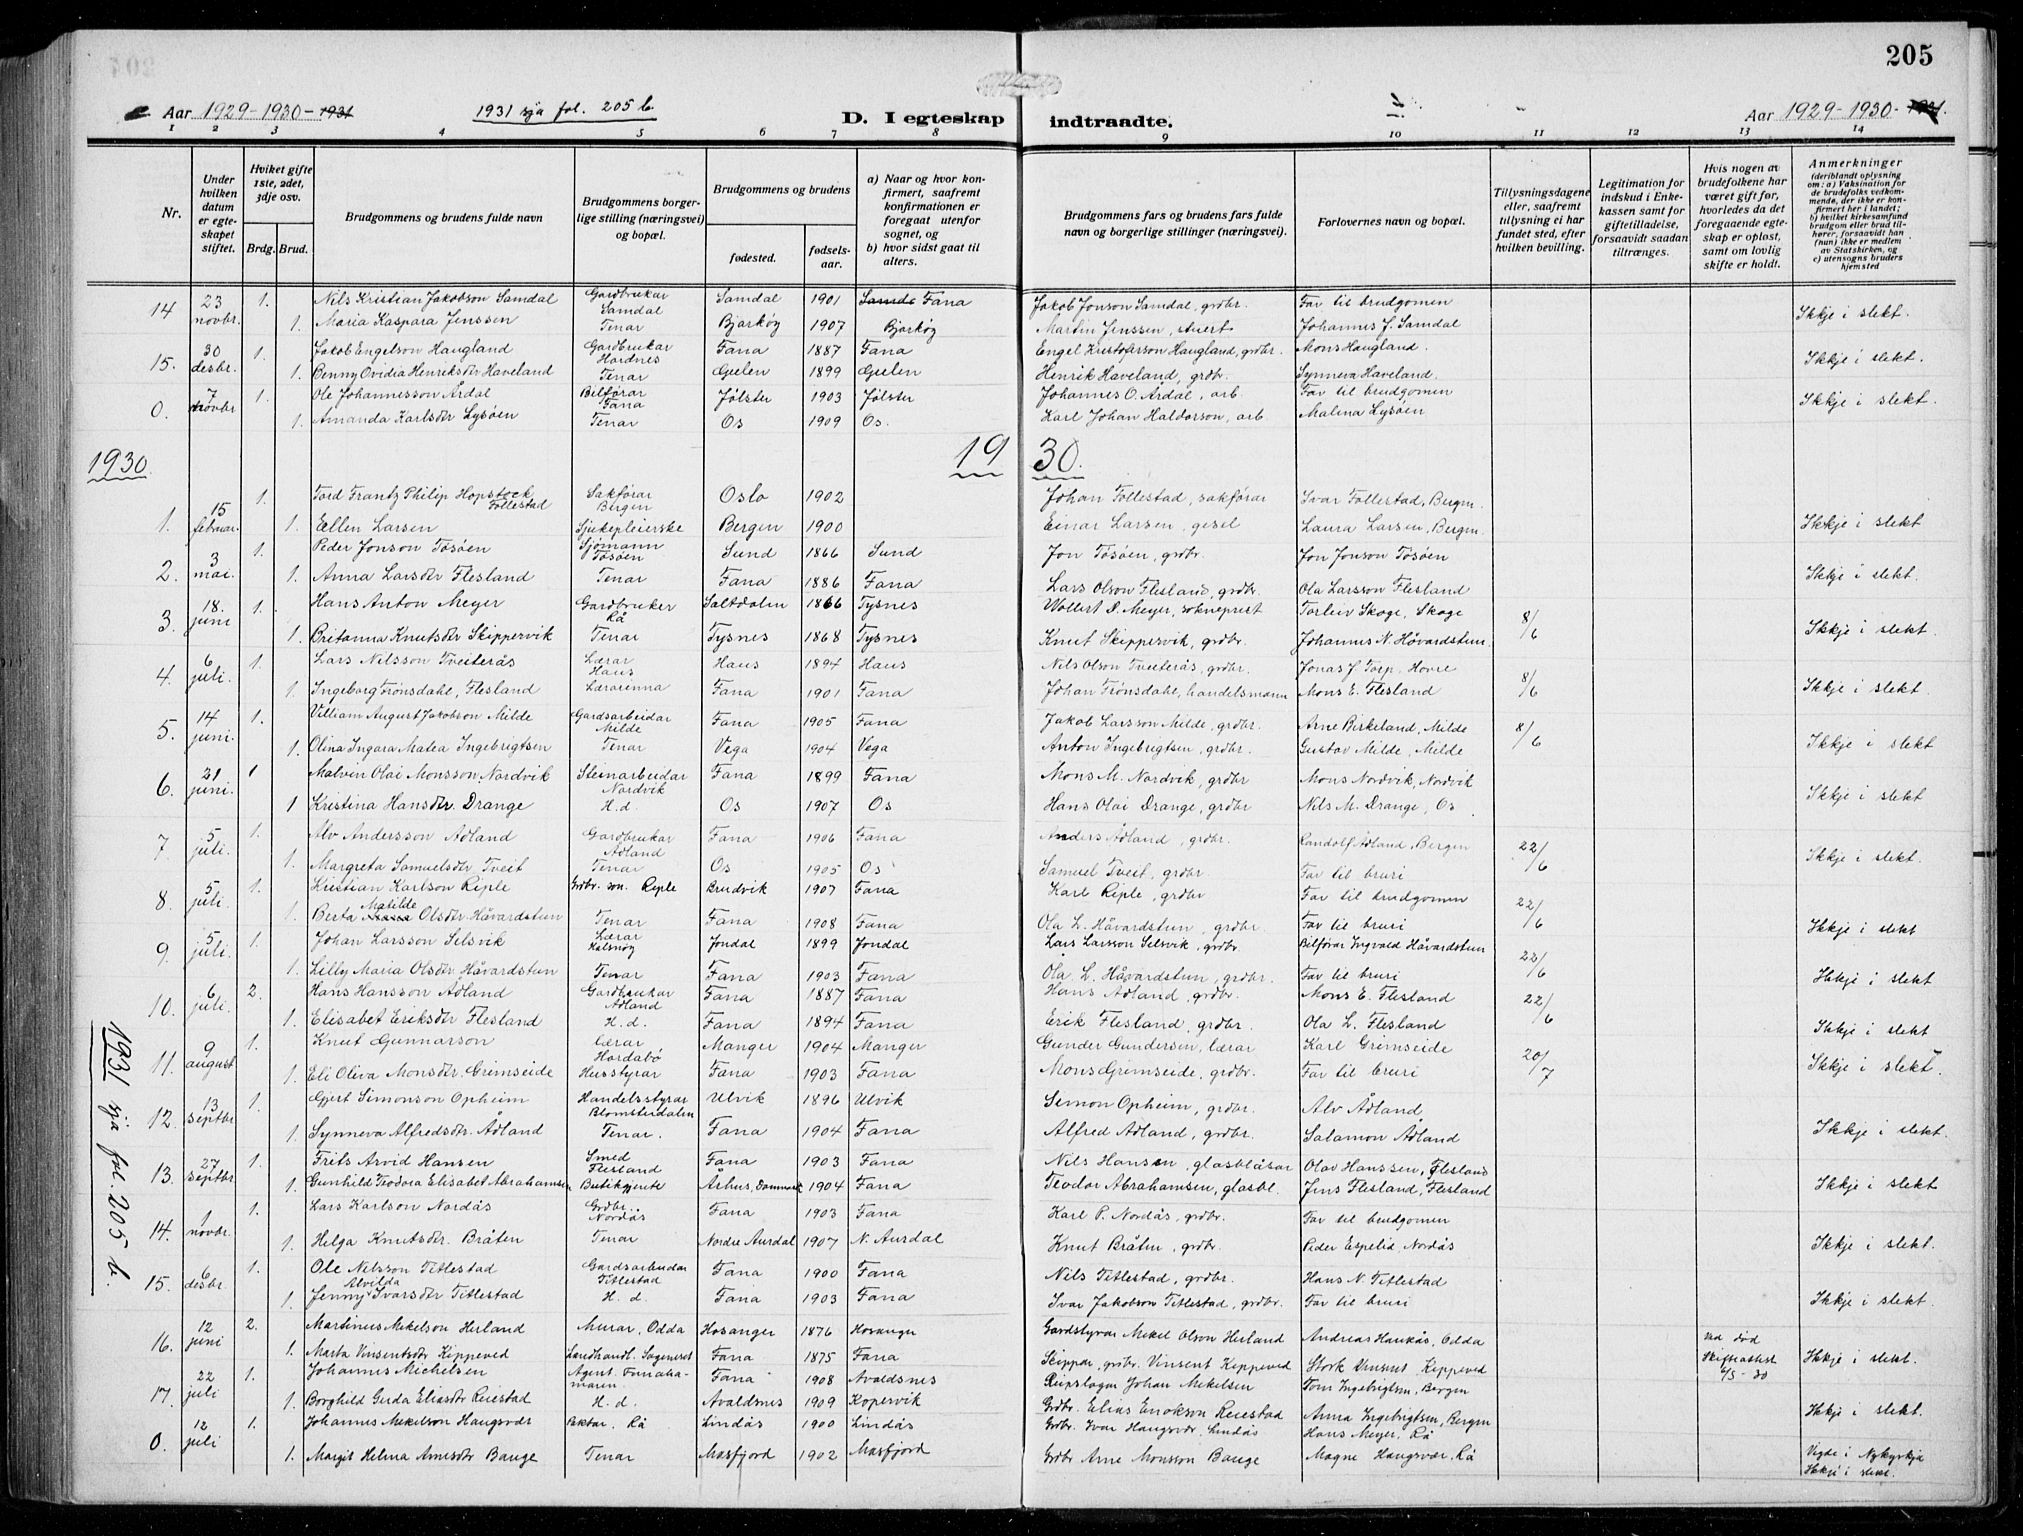 205
Aar 1929-1930-1931
1931 sjå fol. 205 b.
D. I egteskap indtraadte.
Aar 1929-1930-1931.
1 2 3 4 5 6 7 8 9 10 11 12 13 14
Nr.
Under hvilken datum er egteskapet stiftet.
Hviket gifte 1ste, 2det, 3dje osv.
Brdg. Brud.
Brudgommens og brudens fulde navn
Brudgommens borgerlige stilling (næringsvei) og bopæl.
Brudgommens og brudens
fødested.
fødselsaar.
a) Naar og hvor konfirmert, saafremt konfirmationen er foregaat utenfor sognet, og
b) hvor sidst gaat til alters.
Brudgommens fars og brudens fars fulde navn og borgerlige stillinger (næringsvei).
Forlovernes navn og bopæl.
Tillysningsdagene eller, saafremt tillysning ei har fundet sted, efter hvilken bevilling.
Legitimation for indskud i Enkekassen samt for giftetilladelse, forsaavidt saadan tiltrænges.
Hvis nogen av brudefolkene har været gift før, hvorledes da det foregaaende egteskap er opløst, samt om lovlig skifte er holdt.
Anmerkninger
(deriblandt oplysning om: a) Vaksination for de brudefolks vedkommende, der ikke er konfirmert her i landet; b) hvilket kirkesamfund brudgom eller brud tilhører, forsaavidt han (hun) ikke er medlem av Statskirken, og c) utensogns bruders hjemsted
14 23 novbr. 1. Nils Kristian Jakobson Samdal Gardbrukar Samdal Samdal 1901 Fana Jakob Jonson Samdal, grdbr. Far til brudgomen Ikkje i slekt.
1. Maria Kaspara Jenssen Tenar Bjarkøy 1907 Bjarkøy Martin Jenssen, Johannes J. Samdal
15. 30 desbr. 1. Jakob Engelson Haugland Gardbrukar Hordnes Fana 1887 Fana Engel Kristofersson Haugland, grdbr. Mons Haugland. Ikkje i slekt.
1. Benny Ovidia Henriksdtr Haveland Tenar Gulen 1899 Gulen Henrik Haveland, grdbr. Synneva Haveland.
0. 7 novbr 1. Ole Johannesson Årdal Bilførar Fana Jølster 1903 Jølster Johannes O. Årdal, arb Far til brudgomen Ikkje i slekt.
1. Amanda Karlsdtr Lysøen Tenar Os 1909 Os. Karl Johan Haldorson, arb Malina Lysøen
1930. 1930.
1. 15 februar. 1. Tord Frantz Philip Hopstock Follestad Sakførar Bergen Oslo 1902 Johan Follestad, sakførar Ivar Follestad, Bergen
1. Ellen Larsen Sjukepleierske Bergen 1900 Einar Larsen, gesel Laura Larsen, Bergen. Ikkje i slekt
2. 3 mai. 1. Peder Jonson Tøsøen Sjømann Tøsøen Sund 1866 Sund Jon Tøsøen, grdbr. Jon Jonson Tøsøen
1. Anna Larsdtr Flesland Tenar Fana 1886 Fana Lars Olson Flesland, grdbr. Ola Larsson Flesland Ikkje i slekt.
3. 18. juni 1. Hans Anton Meyer Gardbruker Rå Saltdalen 1866 Tysnes Wollert D. Meyer, sokneprest Torleiv Skoge, Skoge 8/6
1. Britanna Knutsdtr Skippervik Tenar Tysnes 1868 Tysnes Knut Skippervik, grdbr. Johannes N. Håvardstun. Ikkje i slekt
4. 6 juli. 1. Lars Nilsson Tveiterås Lærar Haus Haus 1894 Haus Nils Olson Tveiterås, grdbr. Jonas J. Torp. Hovre 8/6
1. Ingeborg Trønsdahe, Flesland Lærarinna Fana 1901 Fana Johan Trønsdahe, handelsmann Mons E. Flesland Ikkje i slekt.
5. 14 juni. 1. Villiam August Jakobson Milde Gardsarbeidar Milde Fana 1905 Fana Jakob Larsson Milde, grdbr. Arne Birkeland, Milde 8/6
1. Olina Ingara Matea Ingebrigtsen Tenar Vega 1904 Vega Anton Ingebrigtsen, grdbr. Gustav Milde, Milde Ikkje i slekt
6. 21 juni. 1 Malvin Olai Monsson Nordvik Steinarbeidar Nordvik Fana 1899 Fana Mons M. Nordvik, grdbr Mons Nordvik, Nordvik
1 Kristina Hansdtr. Drange H.d. Os 1907 Os Hans Olai Drange, grdbr Nils M. Drange, Os Ikkje i slekt
7 5 juli. 1. Alv Andersson Ådland Gardbrukar Ådland Fana 1906 Fana Anders Ådland, grdbr. Randolf Ådland, Bergen 22/6
1. Margreta Samuelsdtr Tveit Tenar Os 1905 Os Samuel Tveit, grdbr Far til bruri Ikkje i slekt.
8. 5 juli. 1. Kristian Karlson Riple Grdbr. son. Riple Bruvik 1907 Fana Karl Riple, grdbr Far til brudgomen 22/6
1. Berta Matilde Olsdtr Håvardstun Tenar Fana 1908 Fana Ola L. Håvardstun, grdbr. Far til bruri Ikkje i slekt
9. 5 juli. 1. Johan Larsson Selsvik Lærar Halsnøy Jondal 1899 Jondal Lars Larsson Selsvik, grdbr. Bilførar Ingvald Håvardstun 22/6
1. Lilly Maria Olsdtr Håvardstun Tenar Fana 1903 Fana Ola L. Håvardstun, grdbr. Far til bruri Ikkje i slekt
10. 6 juli. 2. Hans Hansson Ådland Gardbrukar Ådland Fana 1887 Fana Hans Ådland, grdbr. Mons E. Flesland 22/6
1. Elisabet Eriksdtr Flesland H. d. Fana 1894 Fana Erik Flesland, grdbr. Ola L. Flesland Ikkje i slekt
11. 9 august 1. Knut Gunnarson Lærar Hordabø Manger 1904 Manger Gunder Gundersen, lærar Karl Grimseide 20/7
1. Eli Oliva Monsdtr. Grimseide Husstyrar Fana 1903 Fana Mons Grimseide, grdbr. Far til bruri Ikkje i slekt.
12. 13 septbr 1. Gjert Simonson Opheim Handelsstyrar Blomsterdalen Ulvik 1896 Ulvik Simon Opheim, grdbr. Alv Ådland
1. Synneva Alfredsdtr. Ådland Tenar. Fana 1904 Fana Alfred Ådland, grdbr. Salamon Ådland Ikkje i slekt.
13. 27 septbr. 1. Frits Arvid Hansen Smed Flesland Fana 1903 Fana Nils Hansen, glasblåsar Olav Hanssen, Flesland
1. Gunhild Teodora Elisabet Abrahamsen Butikgjente Århus, Danmark 1904 Fana Teodor Abrahamsen, glasbl. Jens Flesland, Flesland Ikkje i slekt
14. 1 novbr. 1. Lars Karlson Nordås Grdbr. Nordås Fana 1903 Fana Karl P. Nordås, grdbr. Far til brudgomen
1. Helga Knutsdtr. Bråten Tenar Nordre Aurdal 1907 N. Aurdal Knut Bråten, grdbr. Peder Espelid, Nordås Ikkje i slekt.
15. 6 desbr. 1. Ole Nilsson Titlestad Gardsarbeidar Titlestad Fana 1900 Fana Nils Titlestad, grdbr. Hans N. Titlestad
1. Jenny Alvilda Ivarsdtr Titlestad H. d. Fana 1903 Fana Ivar Jakobson Titlestad, grdbr. Far til bruri Ikkje i slekt.
16. 12 juni 2. Martinus Mikelson Herland Murar, Odda Hosanger 1876 Hosanger Gardstyrar Mikel Olson Herland Andreas Haukås, Odda Ved død Skifteattest 6/5-30
1. Marta Vinsentsdtr Kippeved Landhandl. Fana 1875 Fana Skippar, grdbr. Vinsent Kippeved Stork Vinsent Kippeved Ikkje i slekt.
17. 22 juli 1. Johannes Michelsen Agent. Fanahamaren. Fana 1908 Avaldsnes Reipslagar Johan Mikelsen Tom Ingebrigtsen, Bergen
1. Borghild Gerda Eliasdtr Reiestad H. d. Avaldsnes 1909 Kopervik Grdbr. Elias Erikson Reiestad Anna Ingebrigtsen, Bergen Ikkje i slekt.
0. 12 juli 1. Johannes Mikelson Haugsvær Rå Lindås 1900 Lindås Grdbr. Ivar Haugsvær, Lindås Hans Meyer, Rå
1. Margit Helma Arnesdtr Bauge Tenar Masfjord 1902 Masfjord Grdbr Arne Monsson Bauge Magne Haugsvær, Rå Vigde i Nykyrkja Ikkje i slekt.
1931 sjå fol. 205 b.